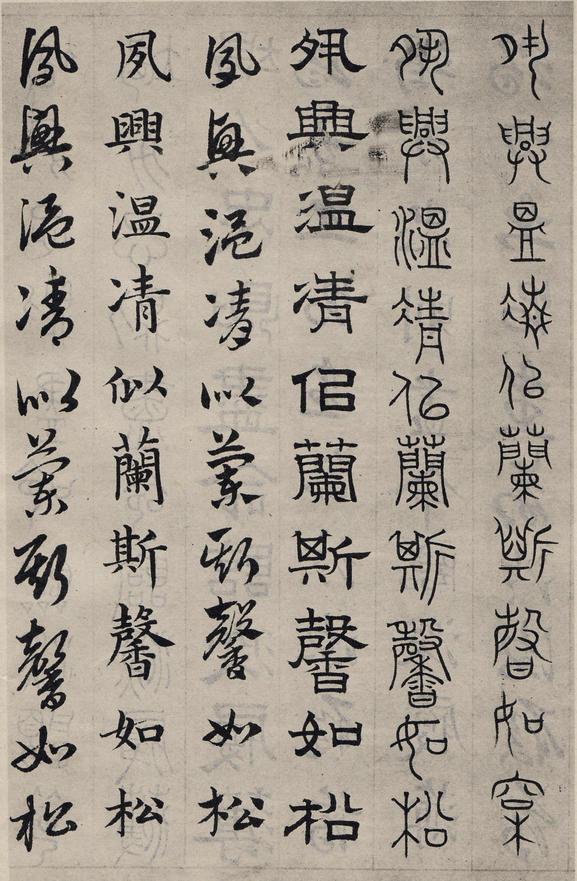 夙興昷凊佀蘭斯馨如松
夙興溫凊佀蘭斯馨如松
夙興温凊佀蘭斯馨如松
夙興温凊似蘭斯馨如松
夙興温凊似蘭斯馨如松
夙興温凊似蘭斯馨如松